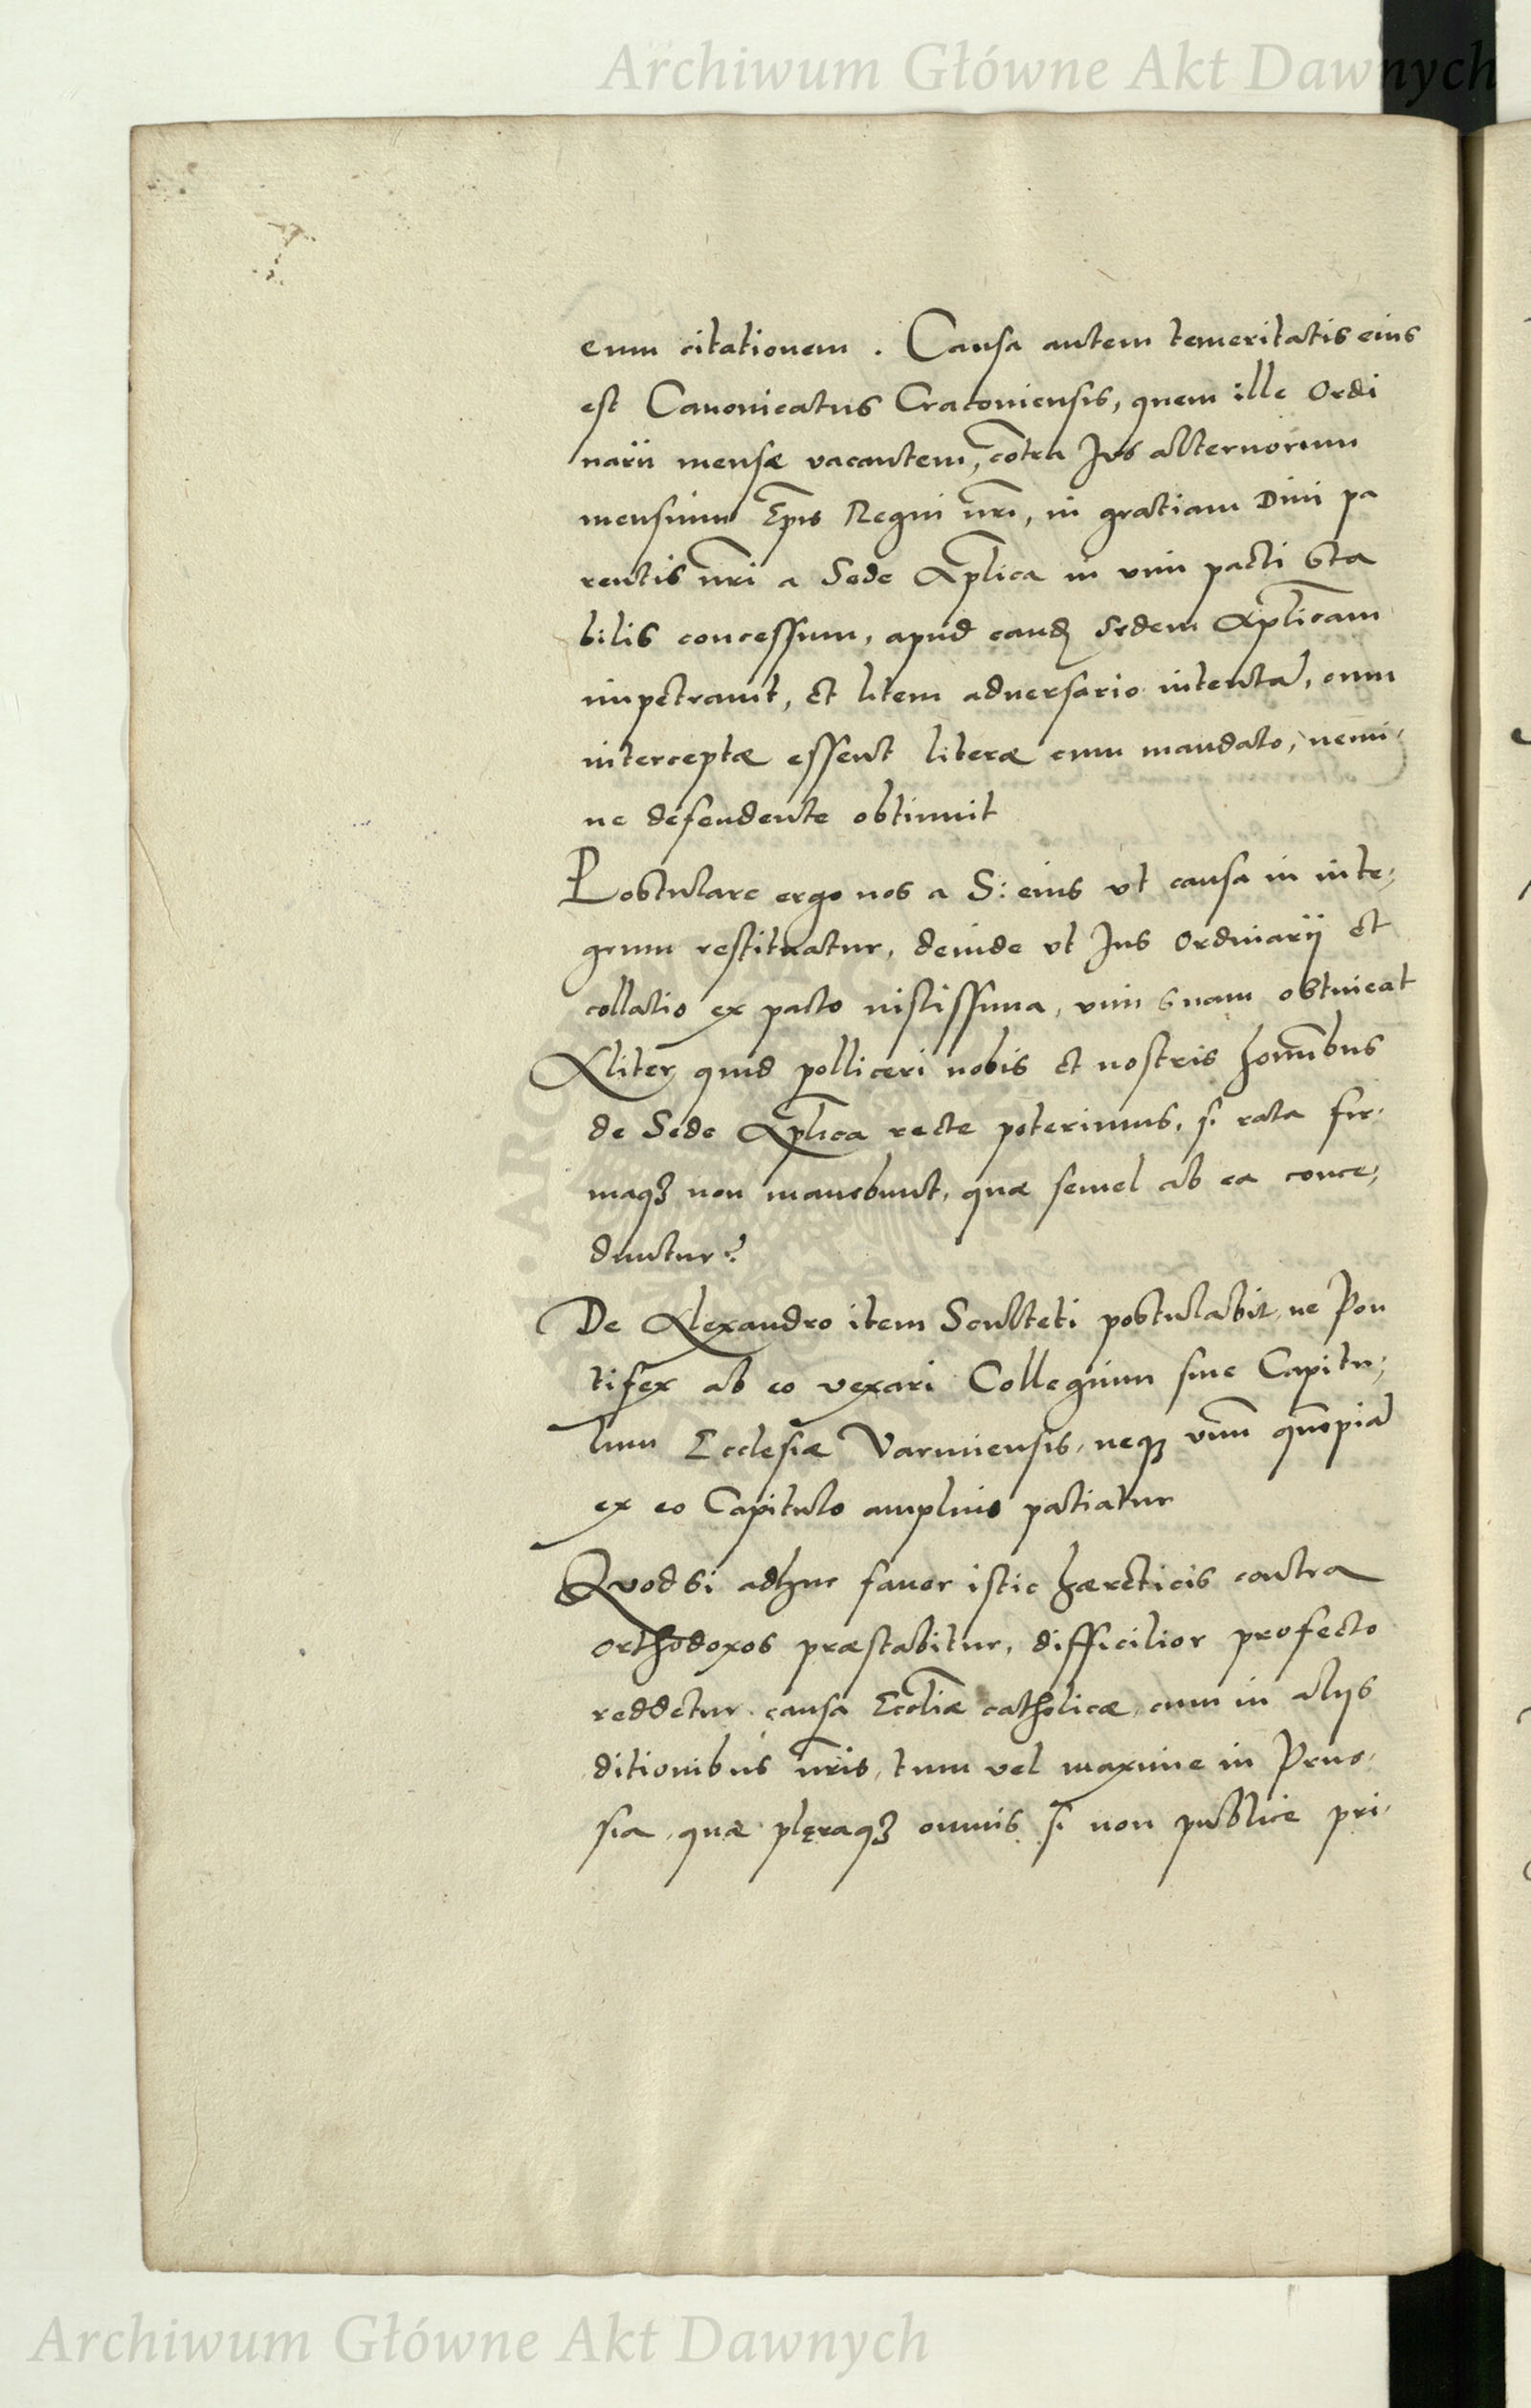 Archiwum Główne Akt Dawnych
eum citationem . Causa autem temeritatis eius
est Canonicatus Cracoviensis, quem ille Ordi
narii mensæ vacantem, cõtra Jus alternorum
mensium Epĩs Regni nrĩ, in gratiam Divi pa
rentis nrĩ a Sede Aplĩca in vim pacti sta
bilis concessum, apud eand[em] Sedem Aplĩcam
impetravit, et litem adversario intentã, cum
interceptæ essent literæ cum mandato, nemi,
ne defendente obtinuit
Postulare ergo nos a S: eius ut causa in inte,
grum restituatur, deinde ut Jus Ordinarij et
collatio ex pacto iustissima, vim suam obtineat
Aliter quid polliceri nobis et nostris homĩbus
de Sede Aplĩca recte poterimus, si rata fir,
maqꝫ non manebunt, quæ semel ab ea conce,
duntur?
De Alexandro item Sculteti postulabit, ne Pon
tifex ab eo vexari Collegium sive Capitu,
lum Ecclesiæ Varmiensis, neqꝫ vnũ quẽpiã
ex eo Capitulo amplius patiatur
Quod si adhuc favor istic hæreticis contra
orthodoxos præstabitur, difficilior profecto
reddetur causa Ecclĩæ catholicæ, cum in alijs
ditionibus nrĩs, tum vel maxime in Prus,
sia, quæ plęraqꝫ omnis si non publice pri,
Archiwum Główne Akt Dawnych